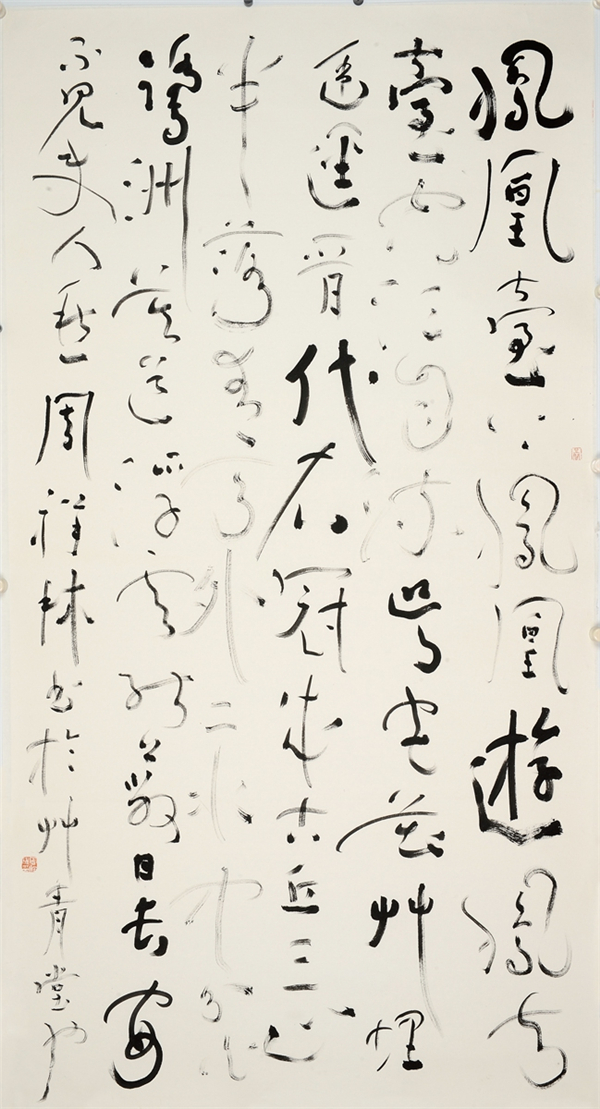 鳳凰臺上鳳凰遊鳳去
臺空江自流吳宮花艸埋
幽逕晉代衣冠成古丘三山
半落青天外二水中分白
鷺洲總為浮雲能蔽日長安
不見使人愁周祥林書於艸青堂也